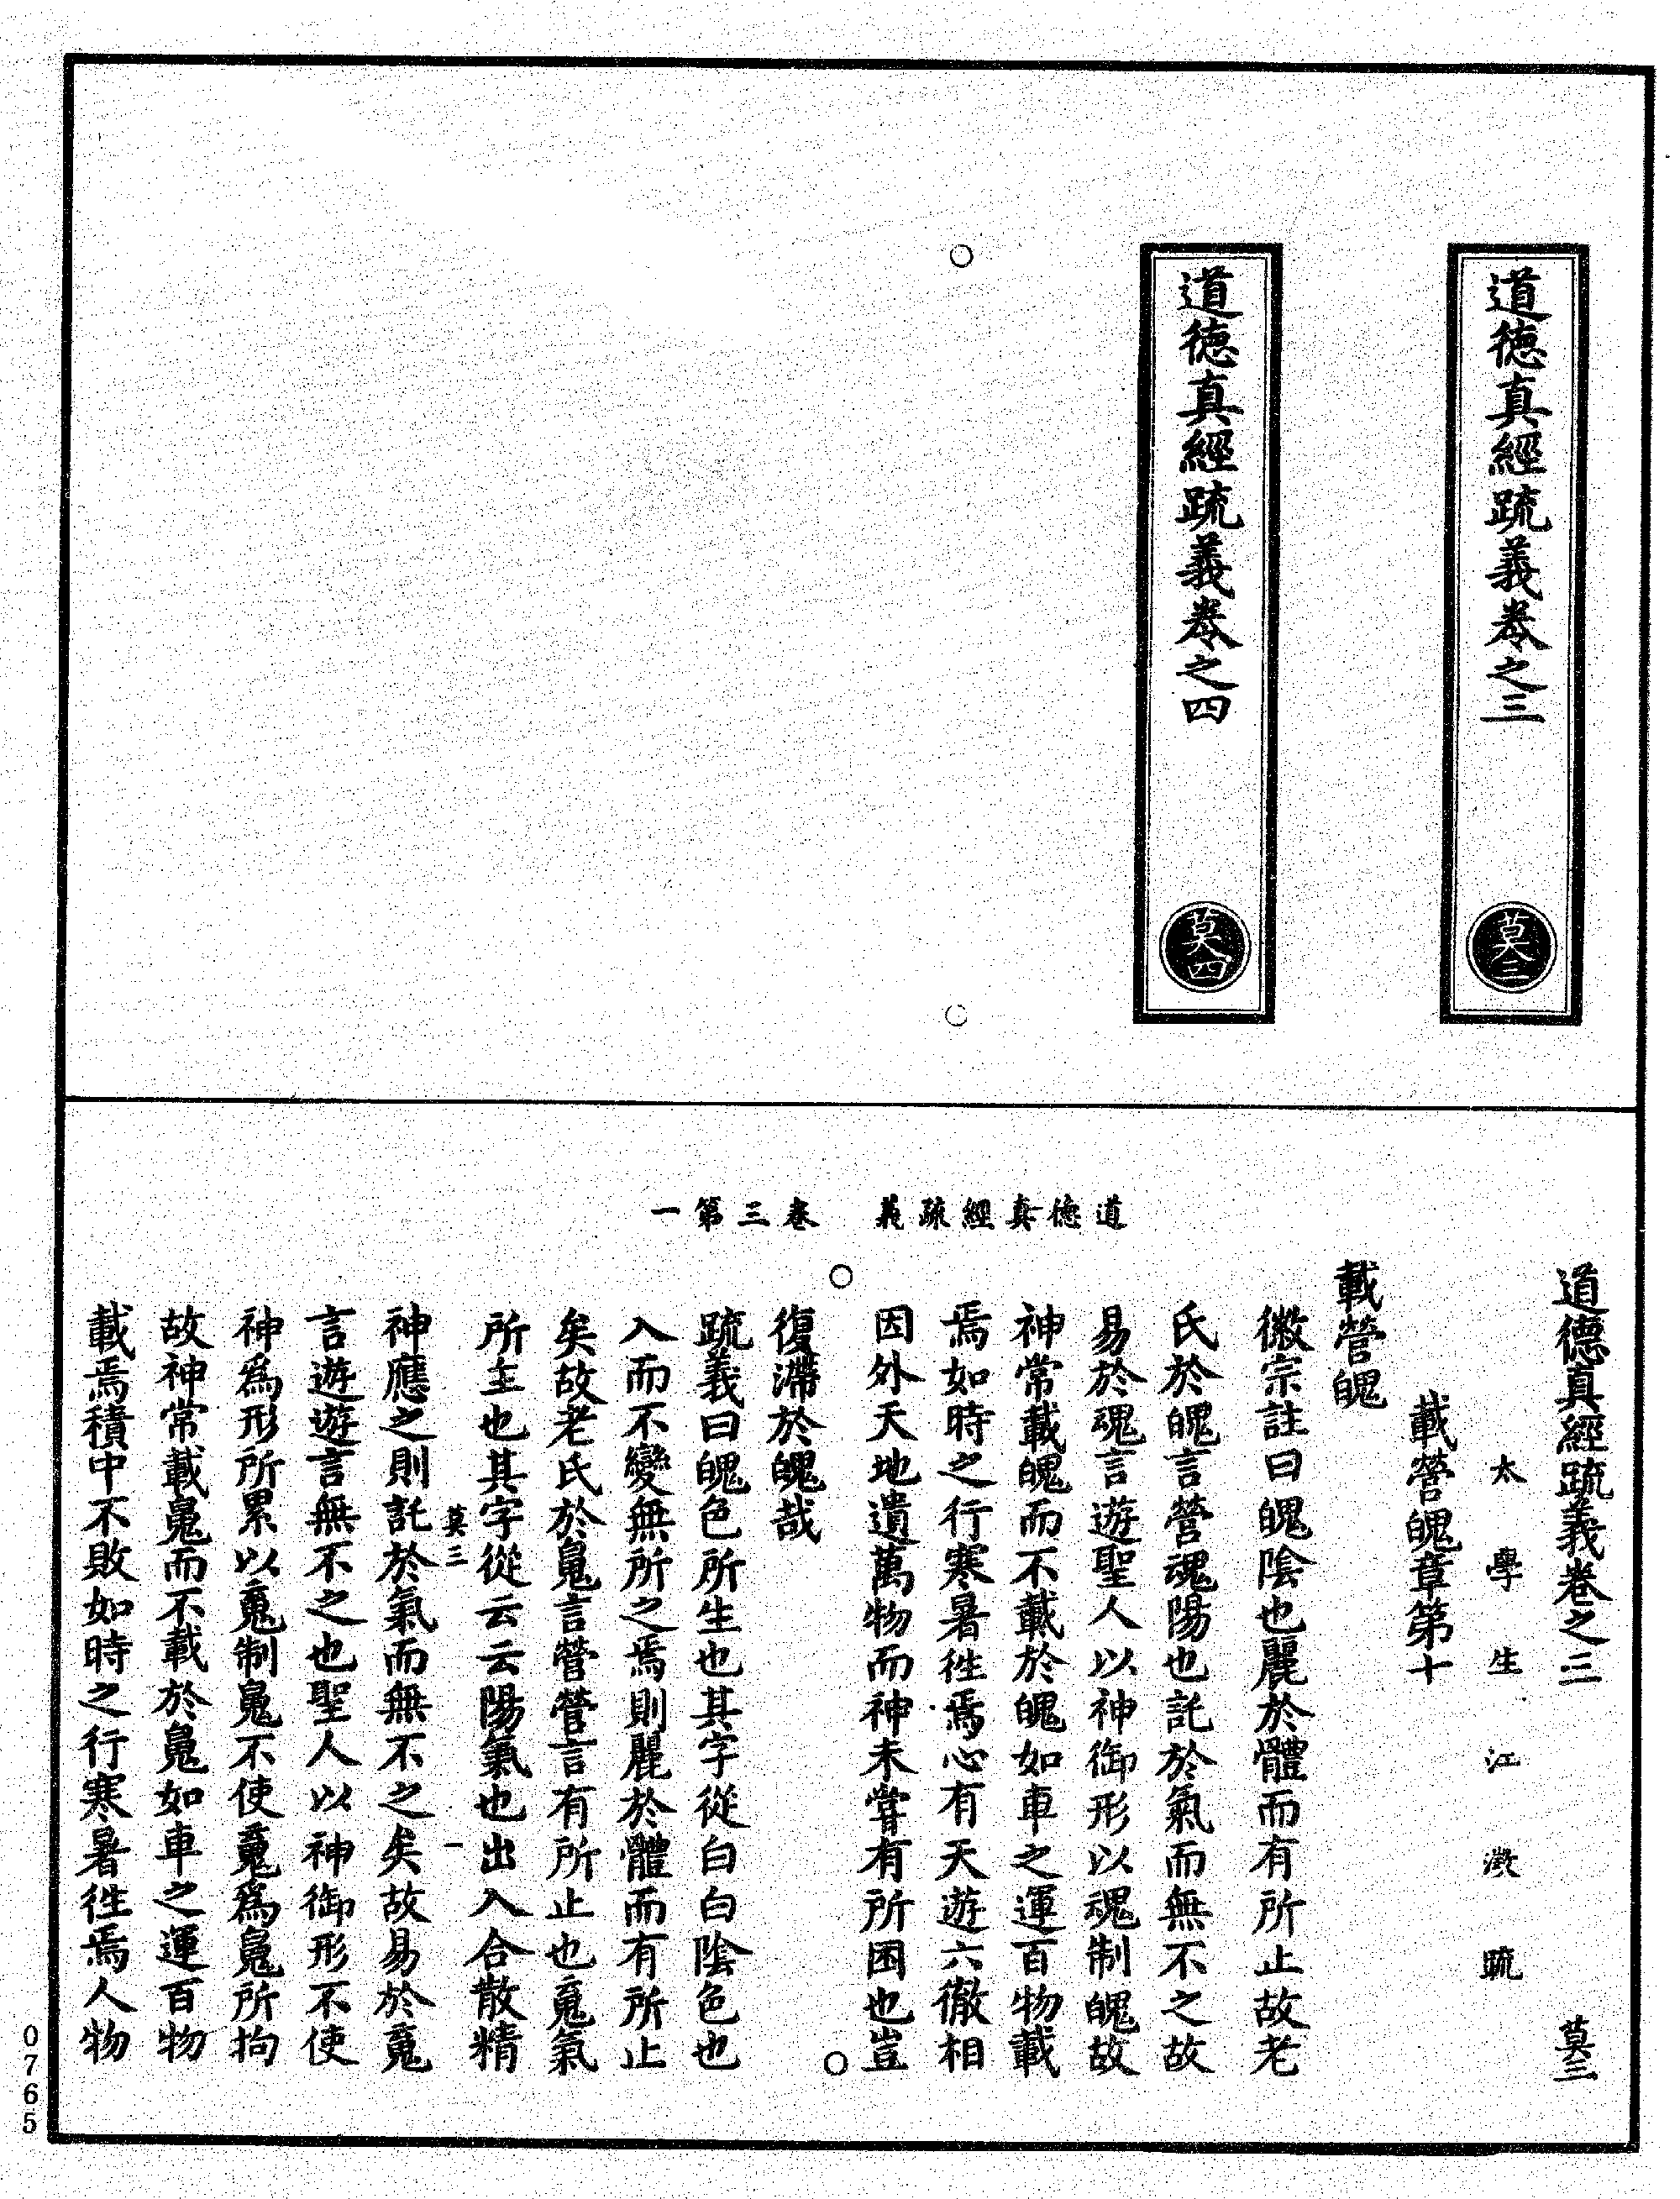 道德真經疏義卷之三
莫三
道德真經疏義卷之四
莫四
道德真經疏義　卷三第一
道德真經疏義卷之三　莫三
太學生江澂疏
載營魄章第十
載營魄
徽宗註曰魄陰也麗於體而有所止故老
氏於魄言營魂陽也託於氣而無不之故
易於魂言遊聖人以神御形以魂制魄故
神常載魄而不載於魄如車之運百物載
焉如時之行寒暑徃焉心有天遊六徹相
因外天地遺萬物而神未嘗有所困也豈
復滯於魄哉
疏義曰魄色所生也其字從白白陰色也
入而不變無所之焉則麗於體而有所止
矣故老氏於魄言營營言有所止也魂氣
所主也其字從云云陽氣也出入合散精
莫三　一
神應之則託於氣而無不之矣故易於魂
言遊遊言無不之也聖人以神御形不使
神爲形所累以魂制魄不使魂爲魄所拘
故神常載魄而不載於魄如車之運百物
載焉積中不敗如時之行寒暑徃焉人物
0765